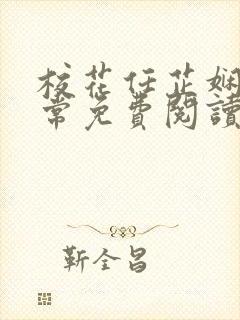 校花任芷娴
常免费閱讀
靳全昌